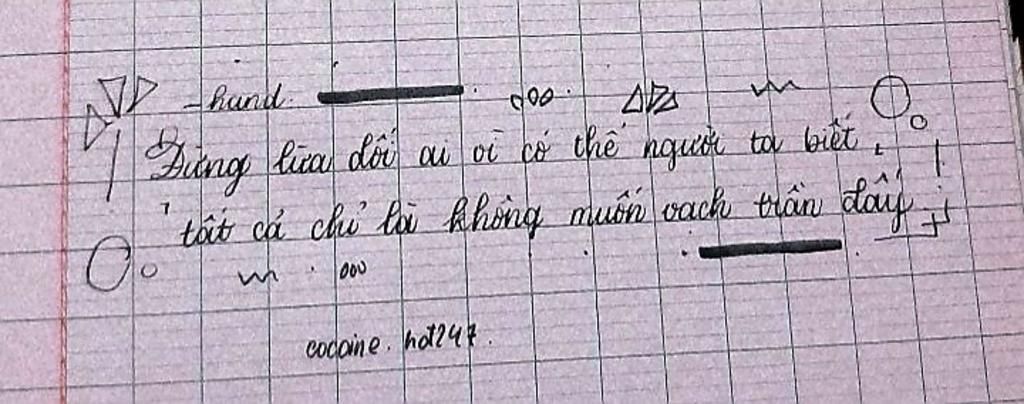 - hand
Đừng lừa dối ai vì có thể người ta biết
tất cả chỉ là không muốn vạch trần đấy
cocaine.hot247.